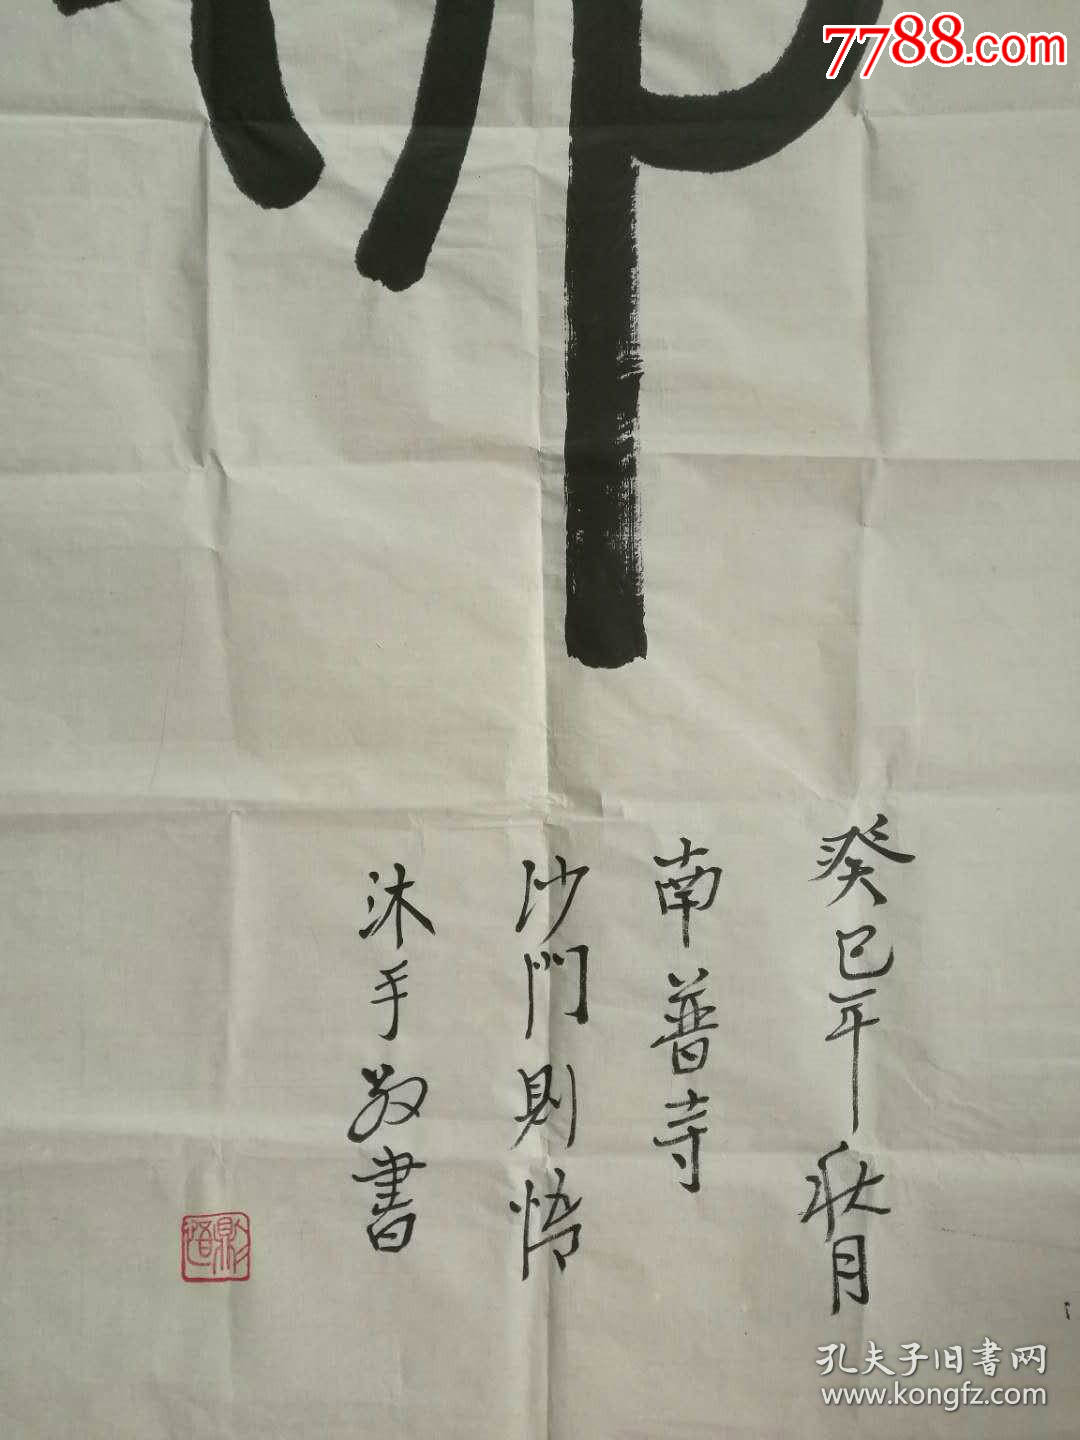 7788.com
癸巳年秋月
南普寺
沙門則悟
沐手敬書
則悟
孔夫子旧書网
www.kongfz.com